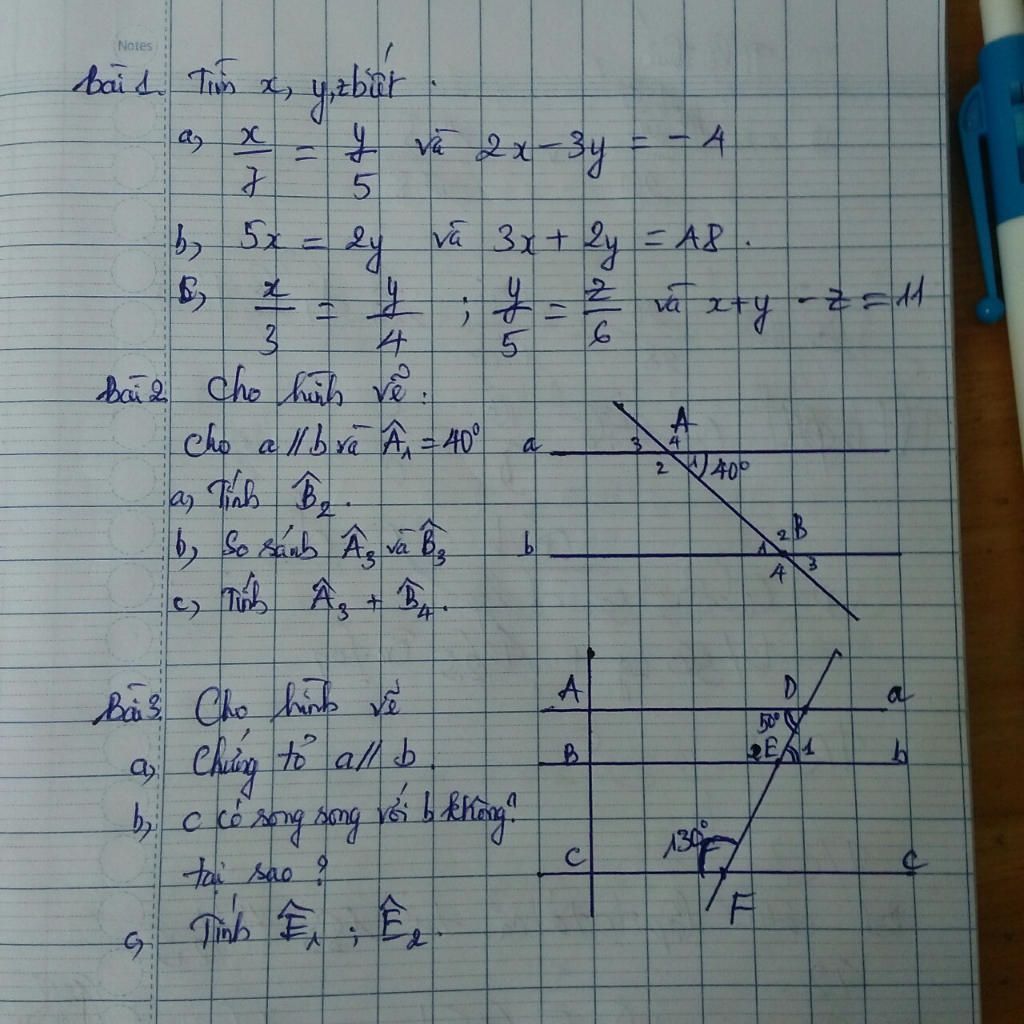 Notes
Bài 1. Tìm x, y, z biết.
a, x/7 = y/5 và 2x - 3y = -4
b, 5x = 2y và 3x + 2y = 48.
c, x/3 = y/4 ; y/5 = z/6 và x+y - z = 11
Bài 2 Cho hình vẽ:
Cho a // b và Â₁ = 40°
a, Tính B̂₂.
b, So sánh Â₃ và B̂₃
c, Tính Â₃ + B̂₄.
A
a 3 4
2 1 40°
b 2 B
1 3
4
Bài 3. Cho hình vẽ
a, Chứng tỏ a // b.
b, c có song song với b không?
tại sao?
c, Tính Ê₁ ; Ê₂.
A D a
50°
B 2 E 1 b
130°
C c
F